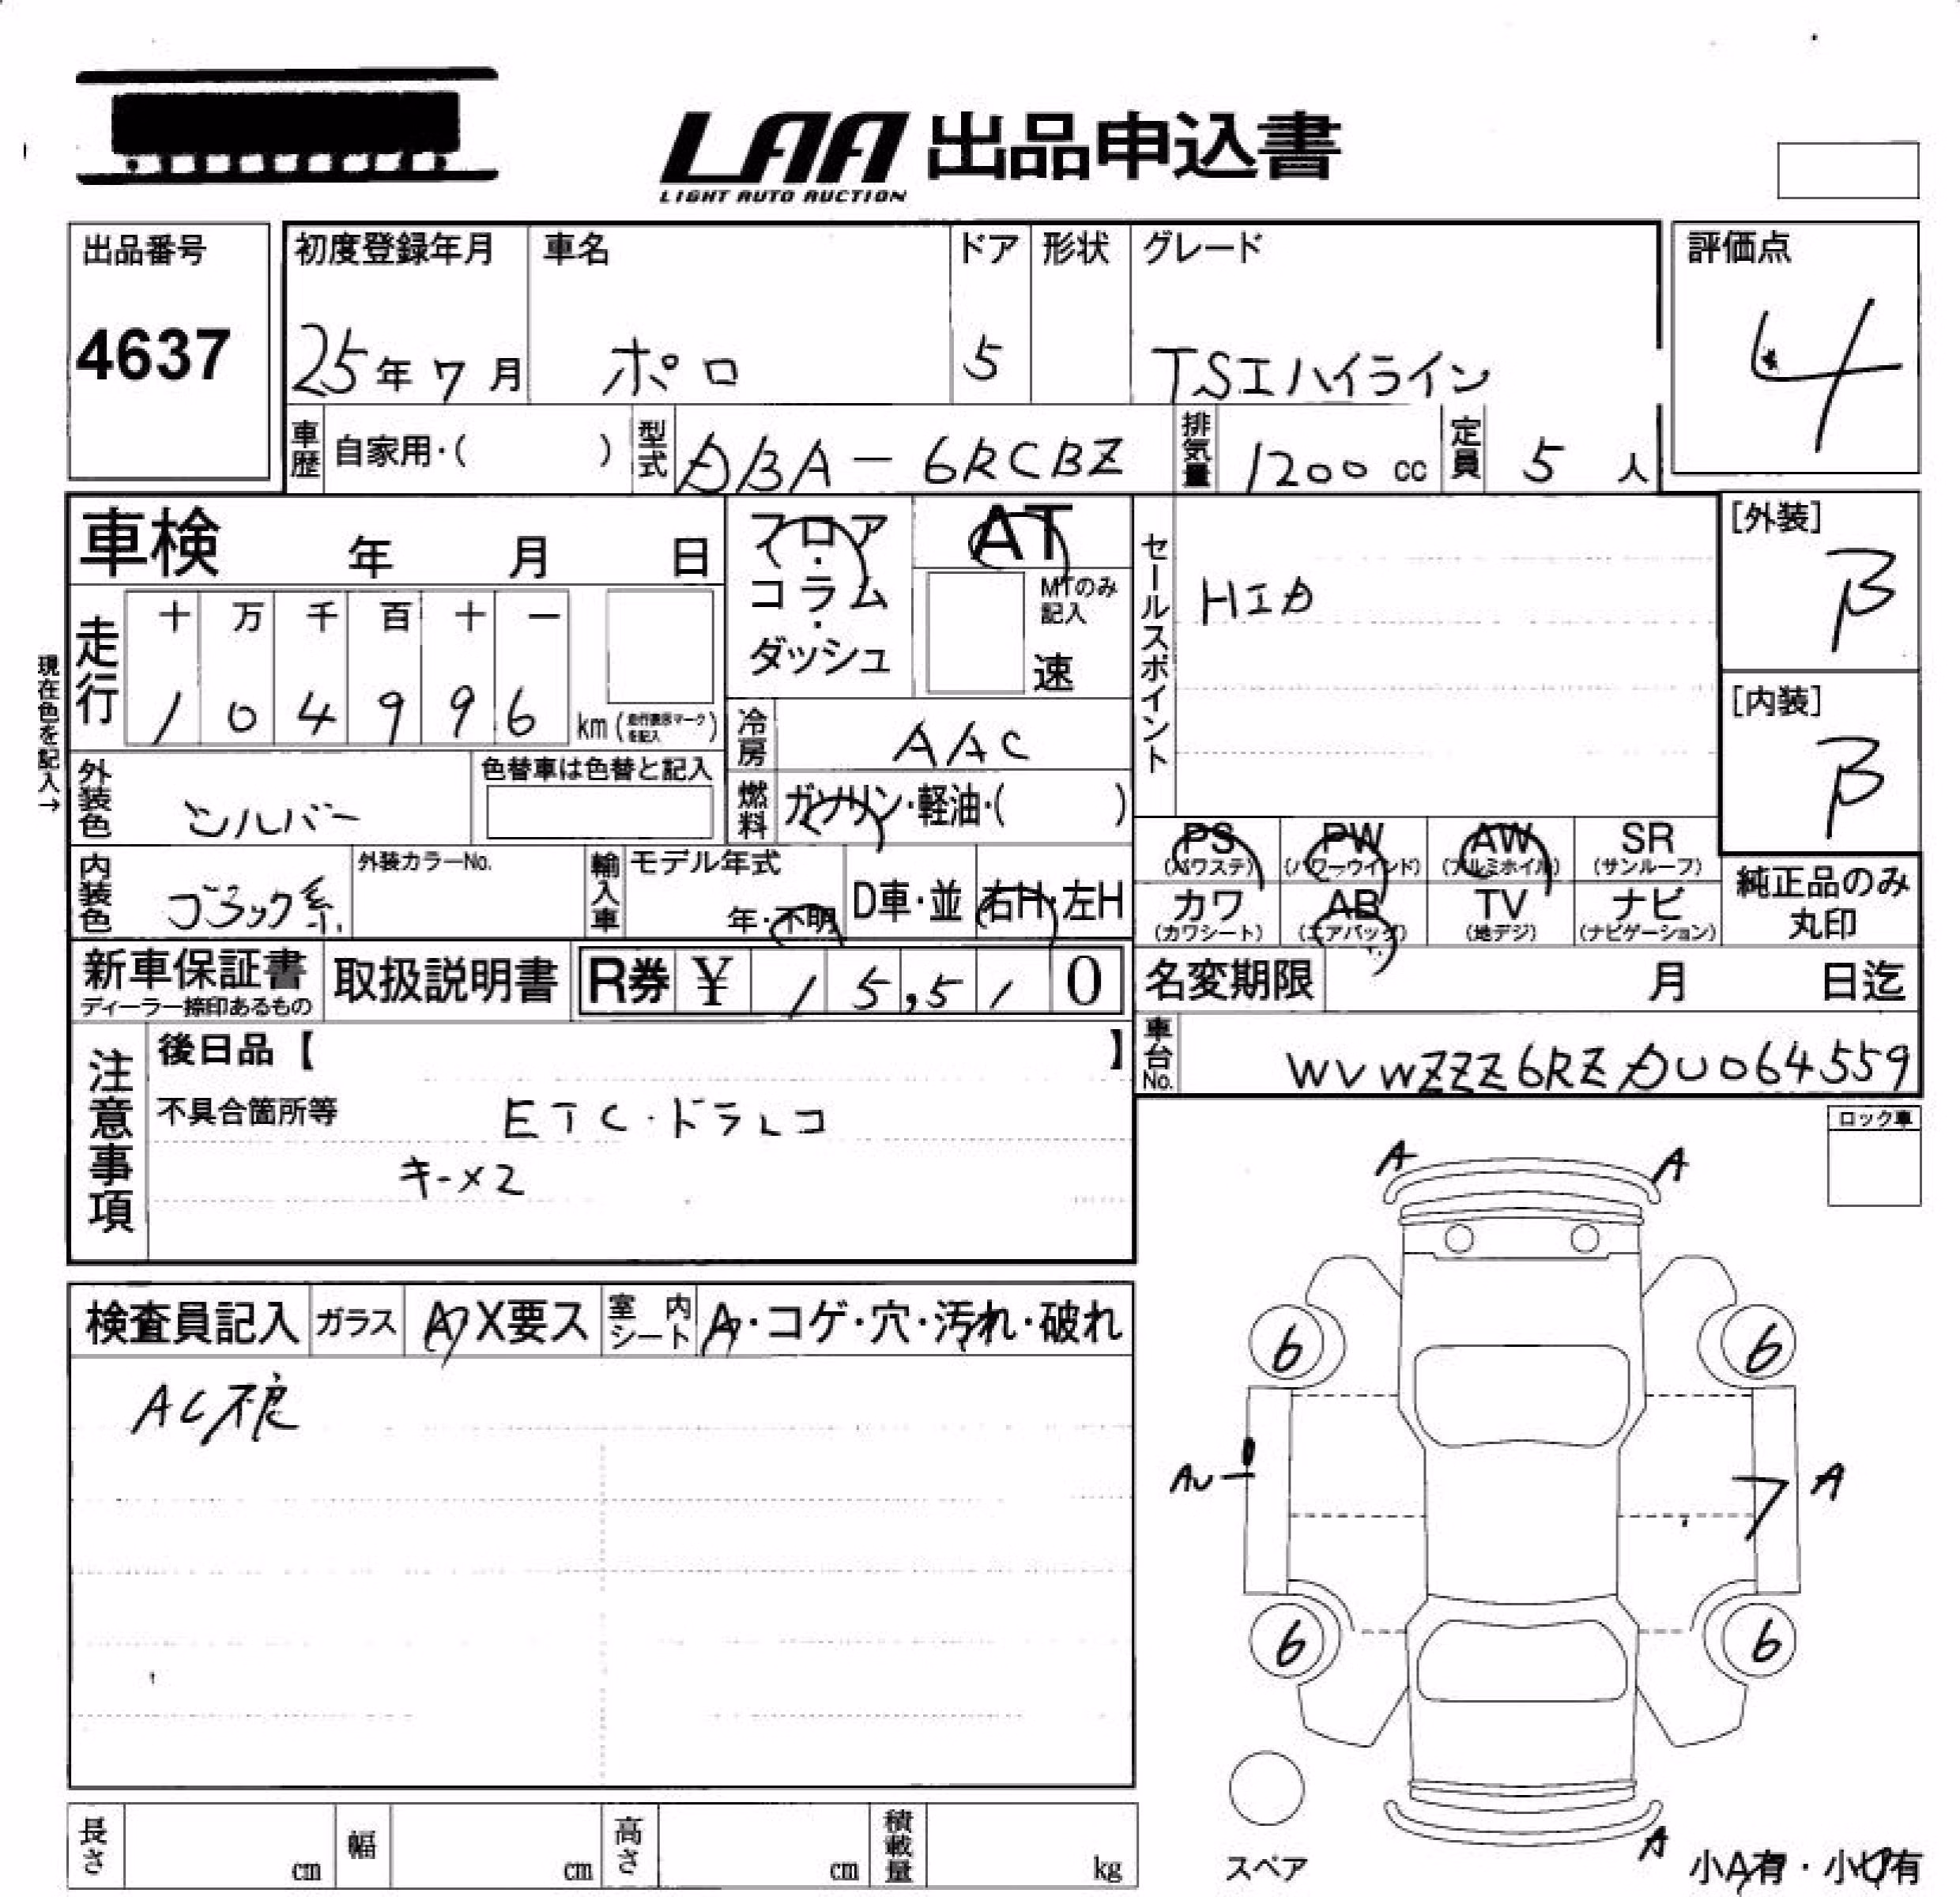 LAA 出品申込書
LIGHT AUTO AUCTION
出品番号
4637
初度登録年月 車名 ドア 形状 グレード
25年7月 ポロ 5 TSIハイライン
評価点
4
車歴 自家用・( ) 型式 DBA-6RCBZ 排気量 1200cc 定員 5人
車検 年 月 日
フロア・コラム・ダッシュ
AT
MTのみ記入
速
セールスポイント
HID
[外装]
B
[内装]
B
現在色を記入→
走行 十 万 千 百 十 一
1 0 4 9 9 6 km (走行表示マークを記入)
冷房 AAC
外装色 シルバー 色替車は色替と記入
燃料 ガソリン・軽油・( )
PS (パワステ) PW (パワーウインド) AW (アルミホイル) SR (サンルーフ)
カワ (カワシート) AB (エアバッグ) TV (地デジ) ナビ (ナビゲーション)
純正品のみ
丸印
内装色 ブラック系 外装カラーNo. 輸入車 モデル年式 年・不明 D車・並 右H・左H
新車保証書
ディーラー捺印あるもの
取扱説明書 R券 ¥ 15,510
名変期限 月 日迄
車台No. WVWZZZ6RZDU064559
注意事項
後日品【 】
不具合箇所等 ETC・ドラレコ
キー×2
ロック車
A A
検査員記入 ガラス A X要ス 室内シート A・コゲ・穴・汚れ・破れ
AC不良
6 6
AU A
6 6
A
スペア
小A有・小U有
長さ cm 幅 cm 高さ cm 積載量 kg